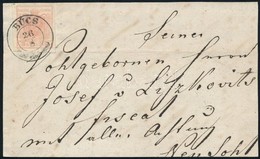 BÜCS
26
Seiner
Wohlgebornen Herrn
Josef v Litzkovits
fiscal
mit aller Achtung
Neu Sohl